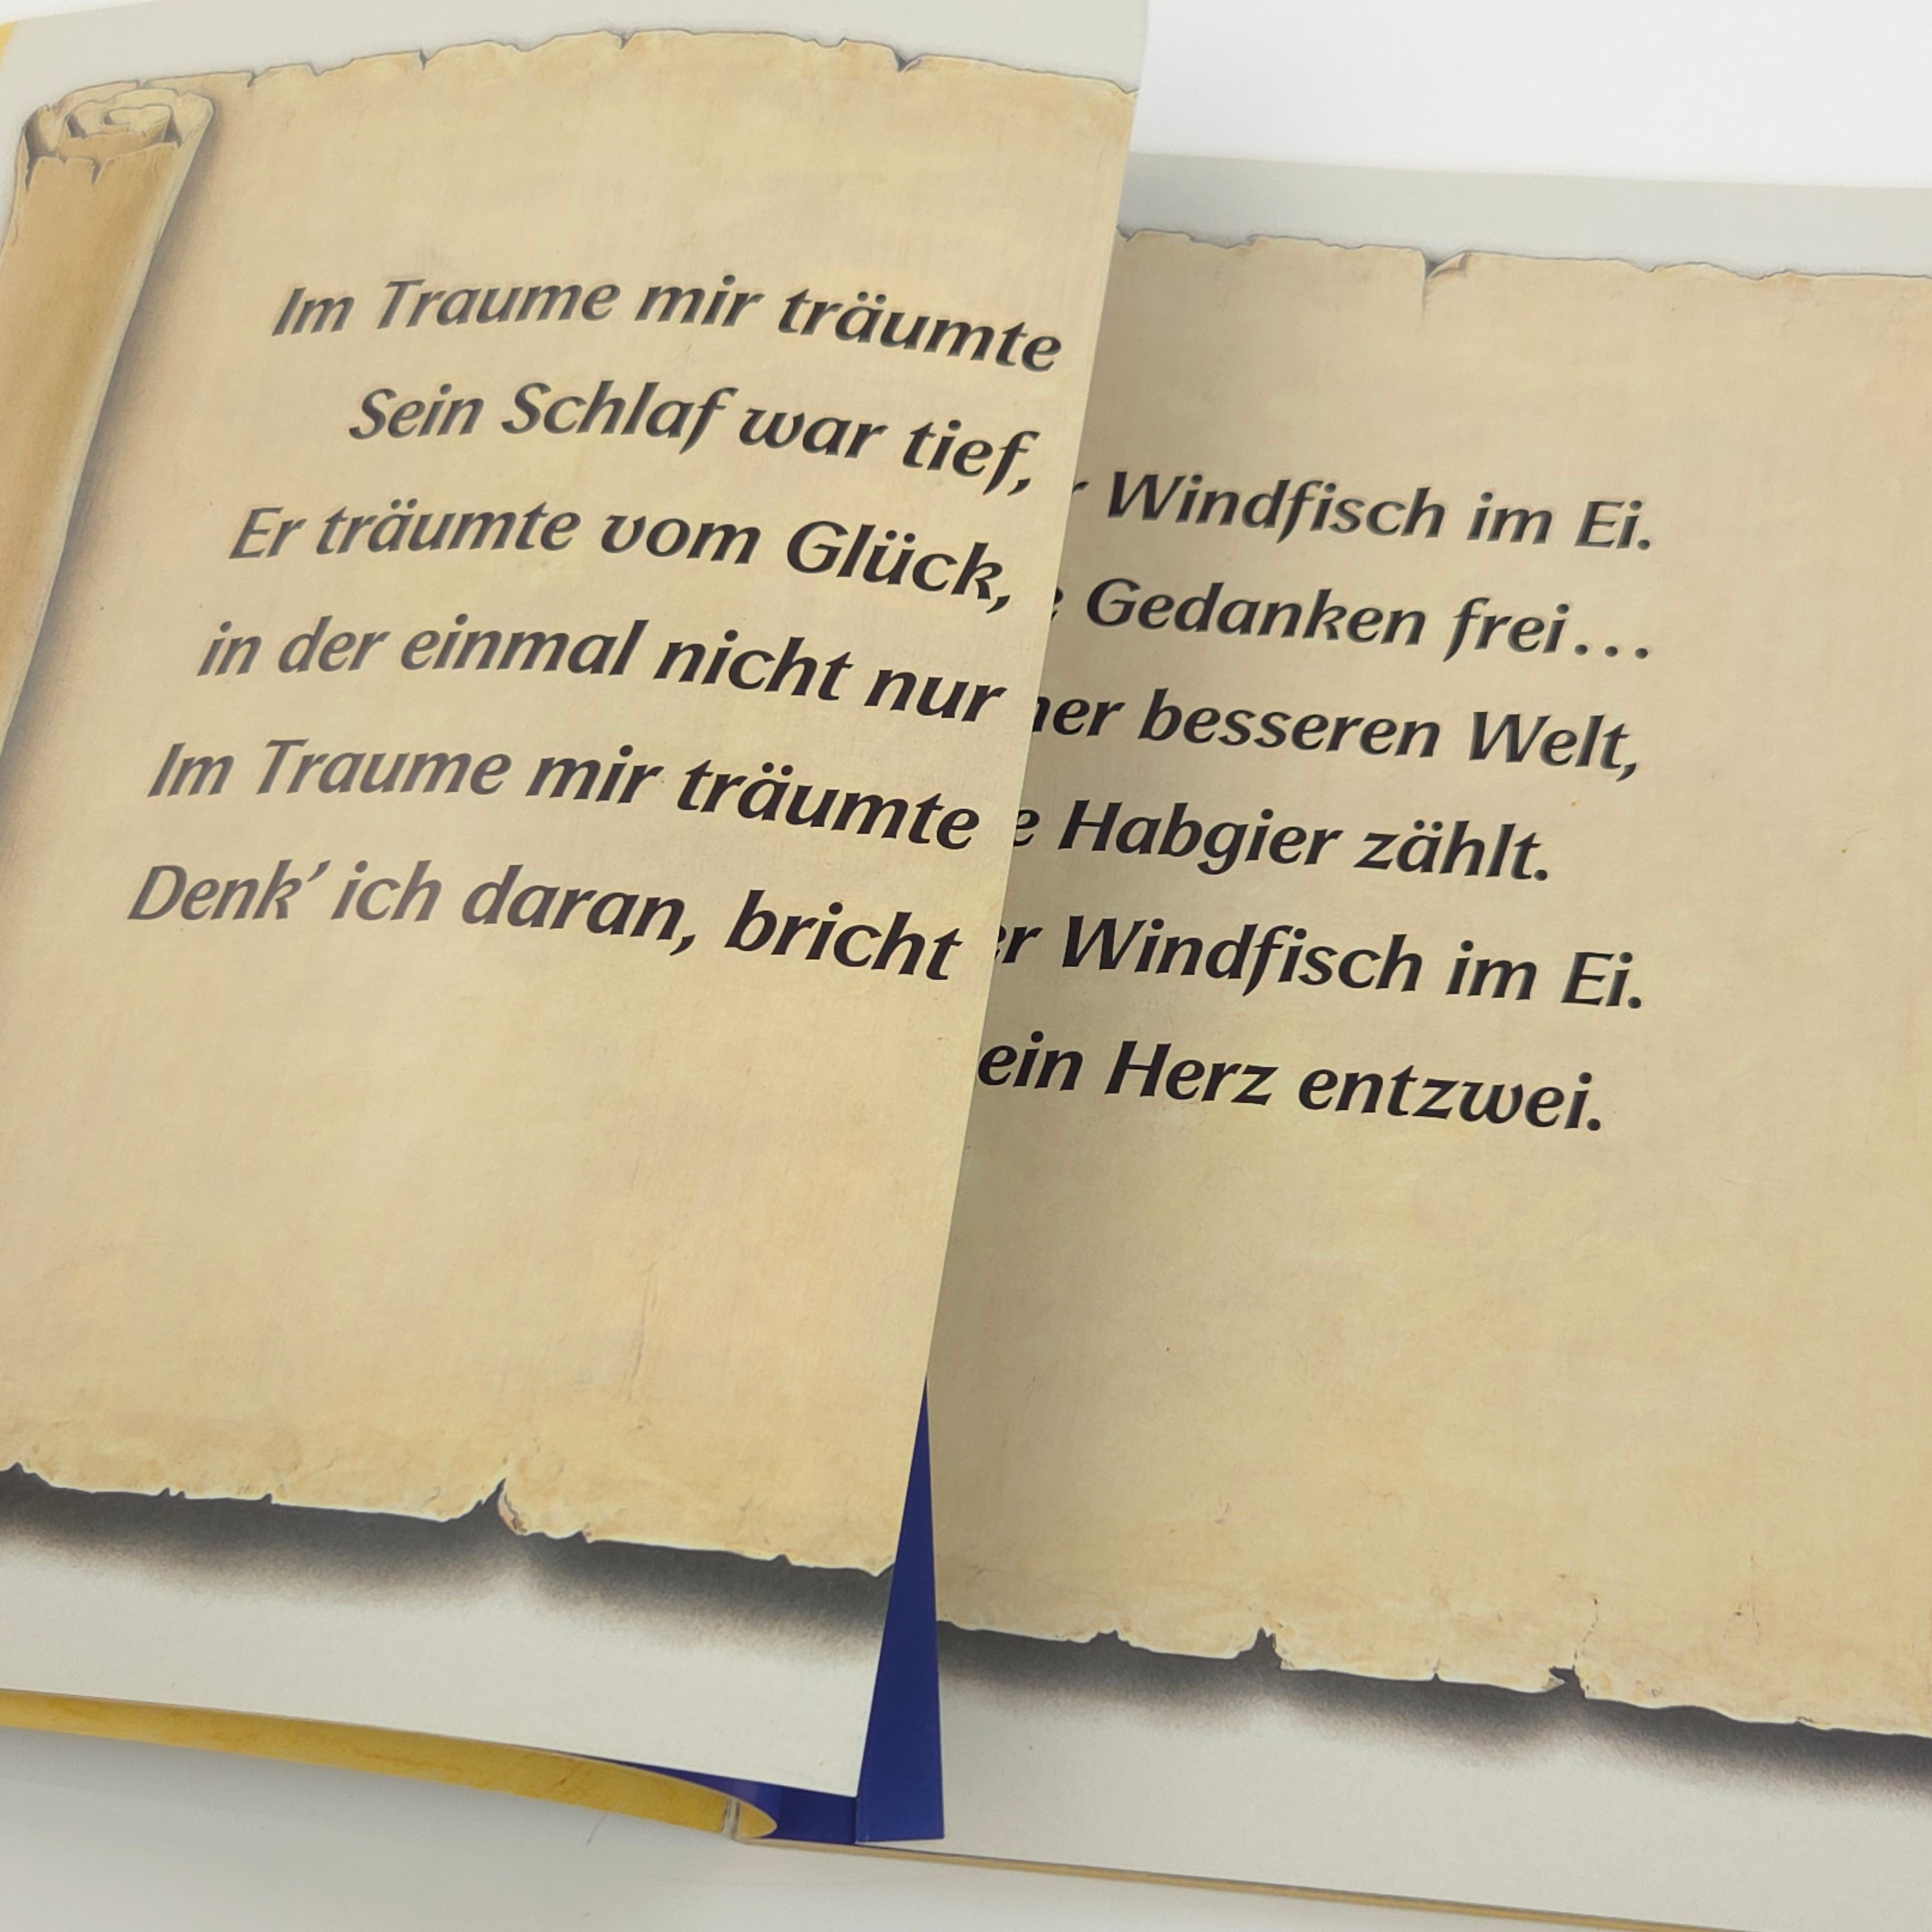 Im Traume mir träumte
Sein Schlaf war tief,
Er träumte vom Glück,
in der einmal nicht nur
Im Traume mir träumte
Denk’ ich daran, bricht
Windfisch im Ei.
Gedanken frei...
besseren Welt,
Habgier zählt.
Windfisch im Ei.
Herz entzwei.